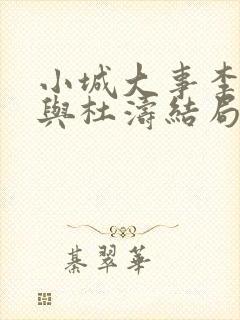 小城大事李
與杜濤結局
綦翠華